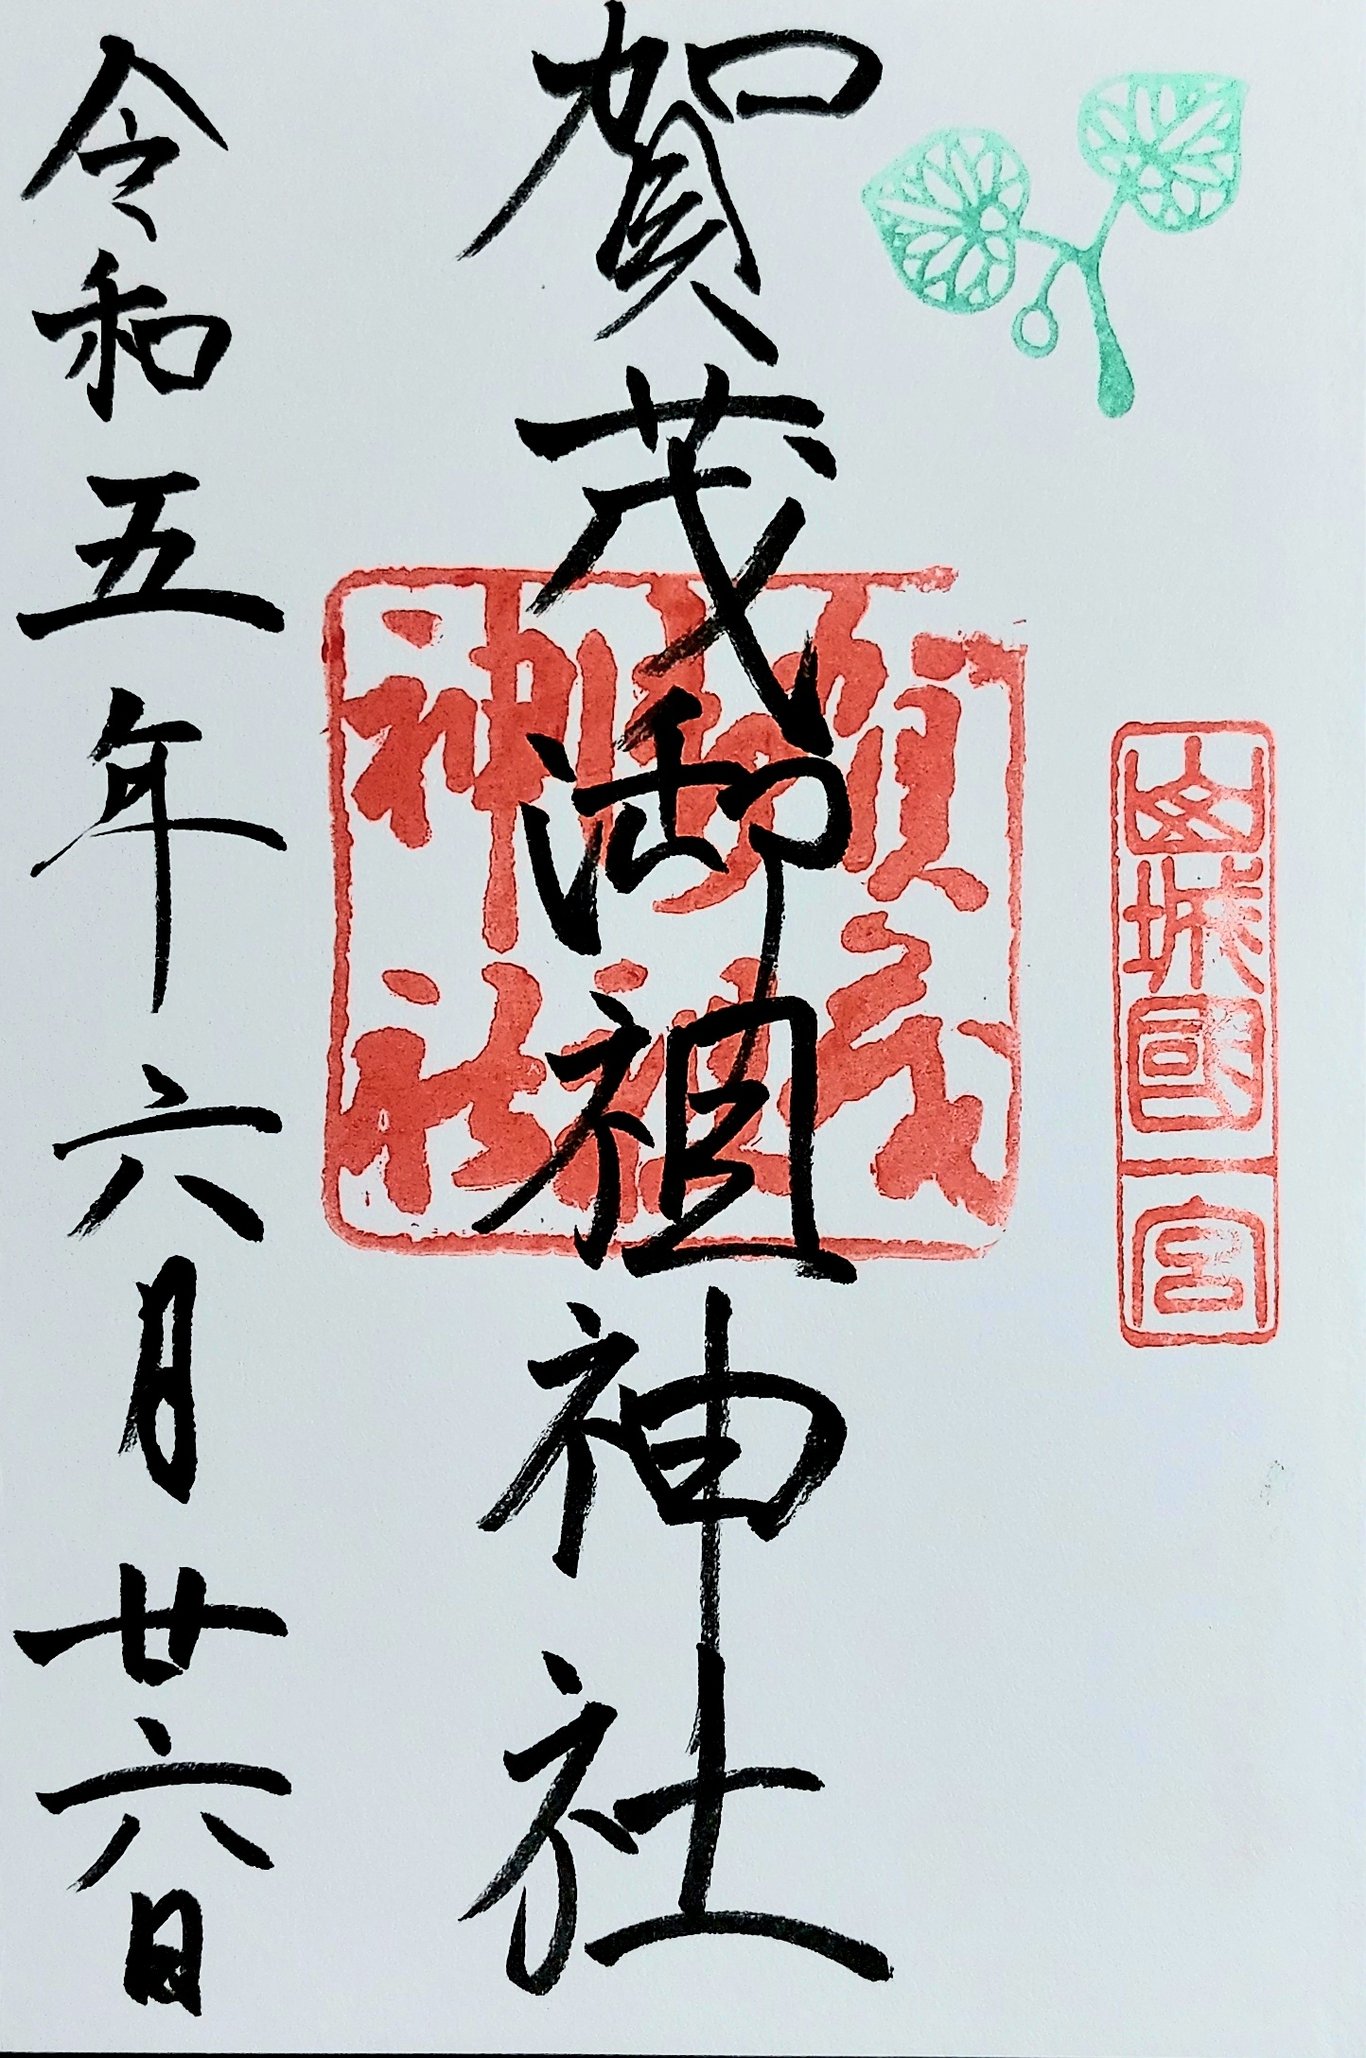 山城國一宮
賀茂御祖神社
賀茂御祖神社
令和五年六月廿六日